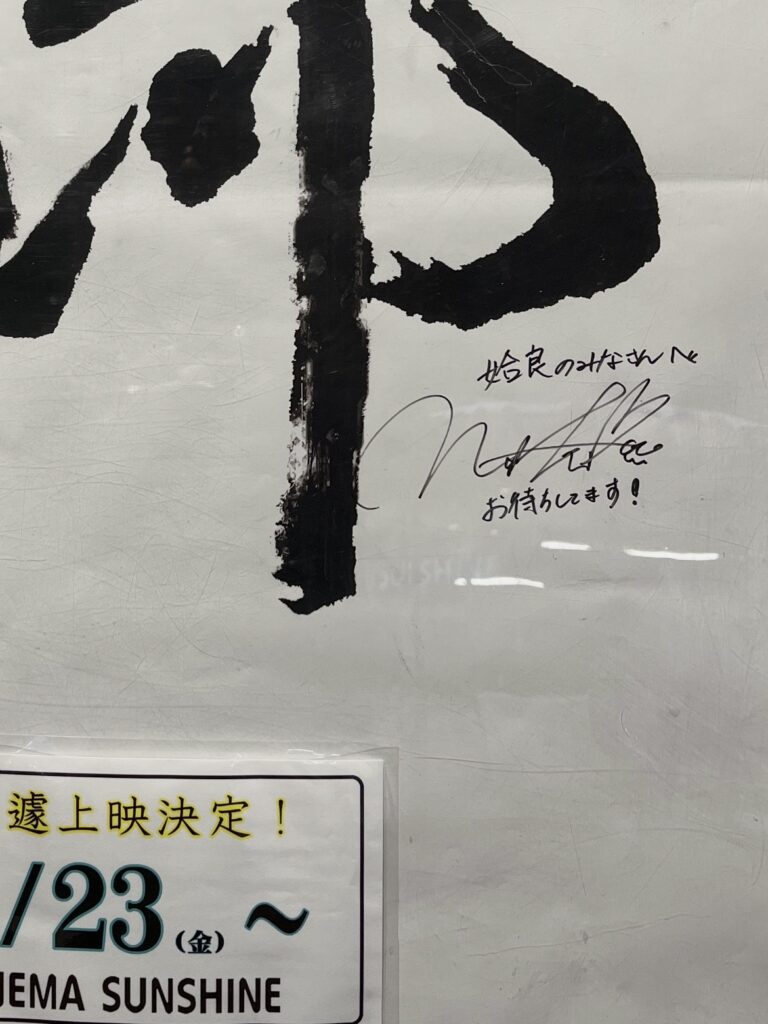 姶良のみなさんへ
お待ちしてます！
遽上映決定！
/23(金)～
EMA SUNSHINE